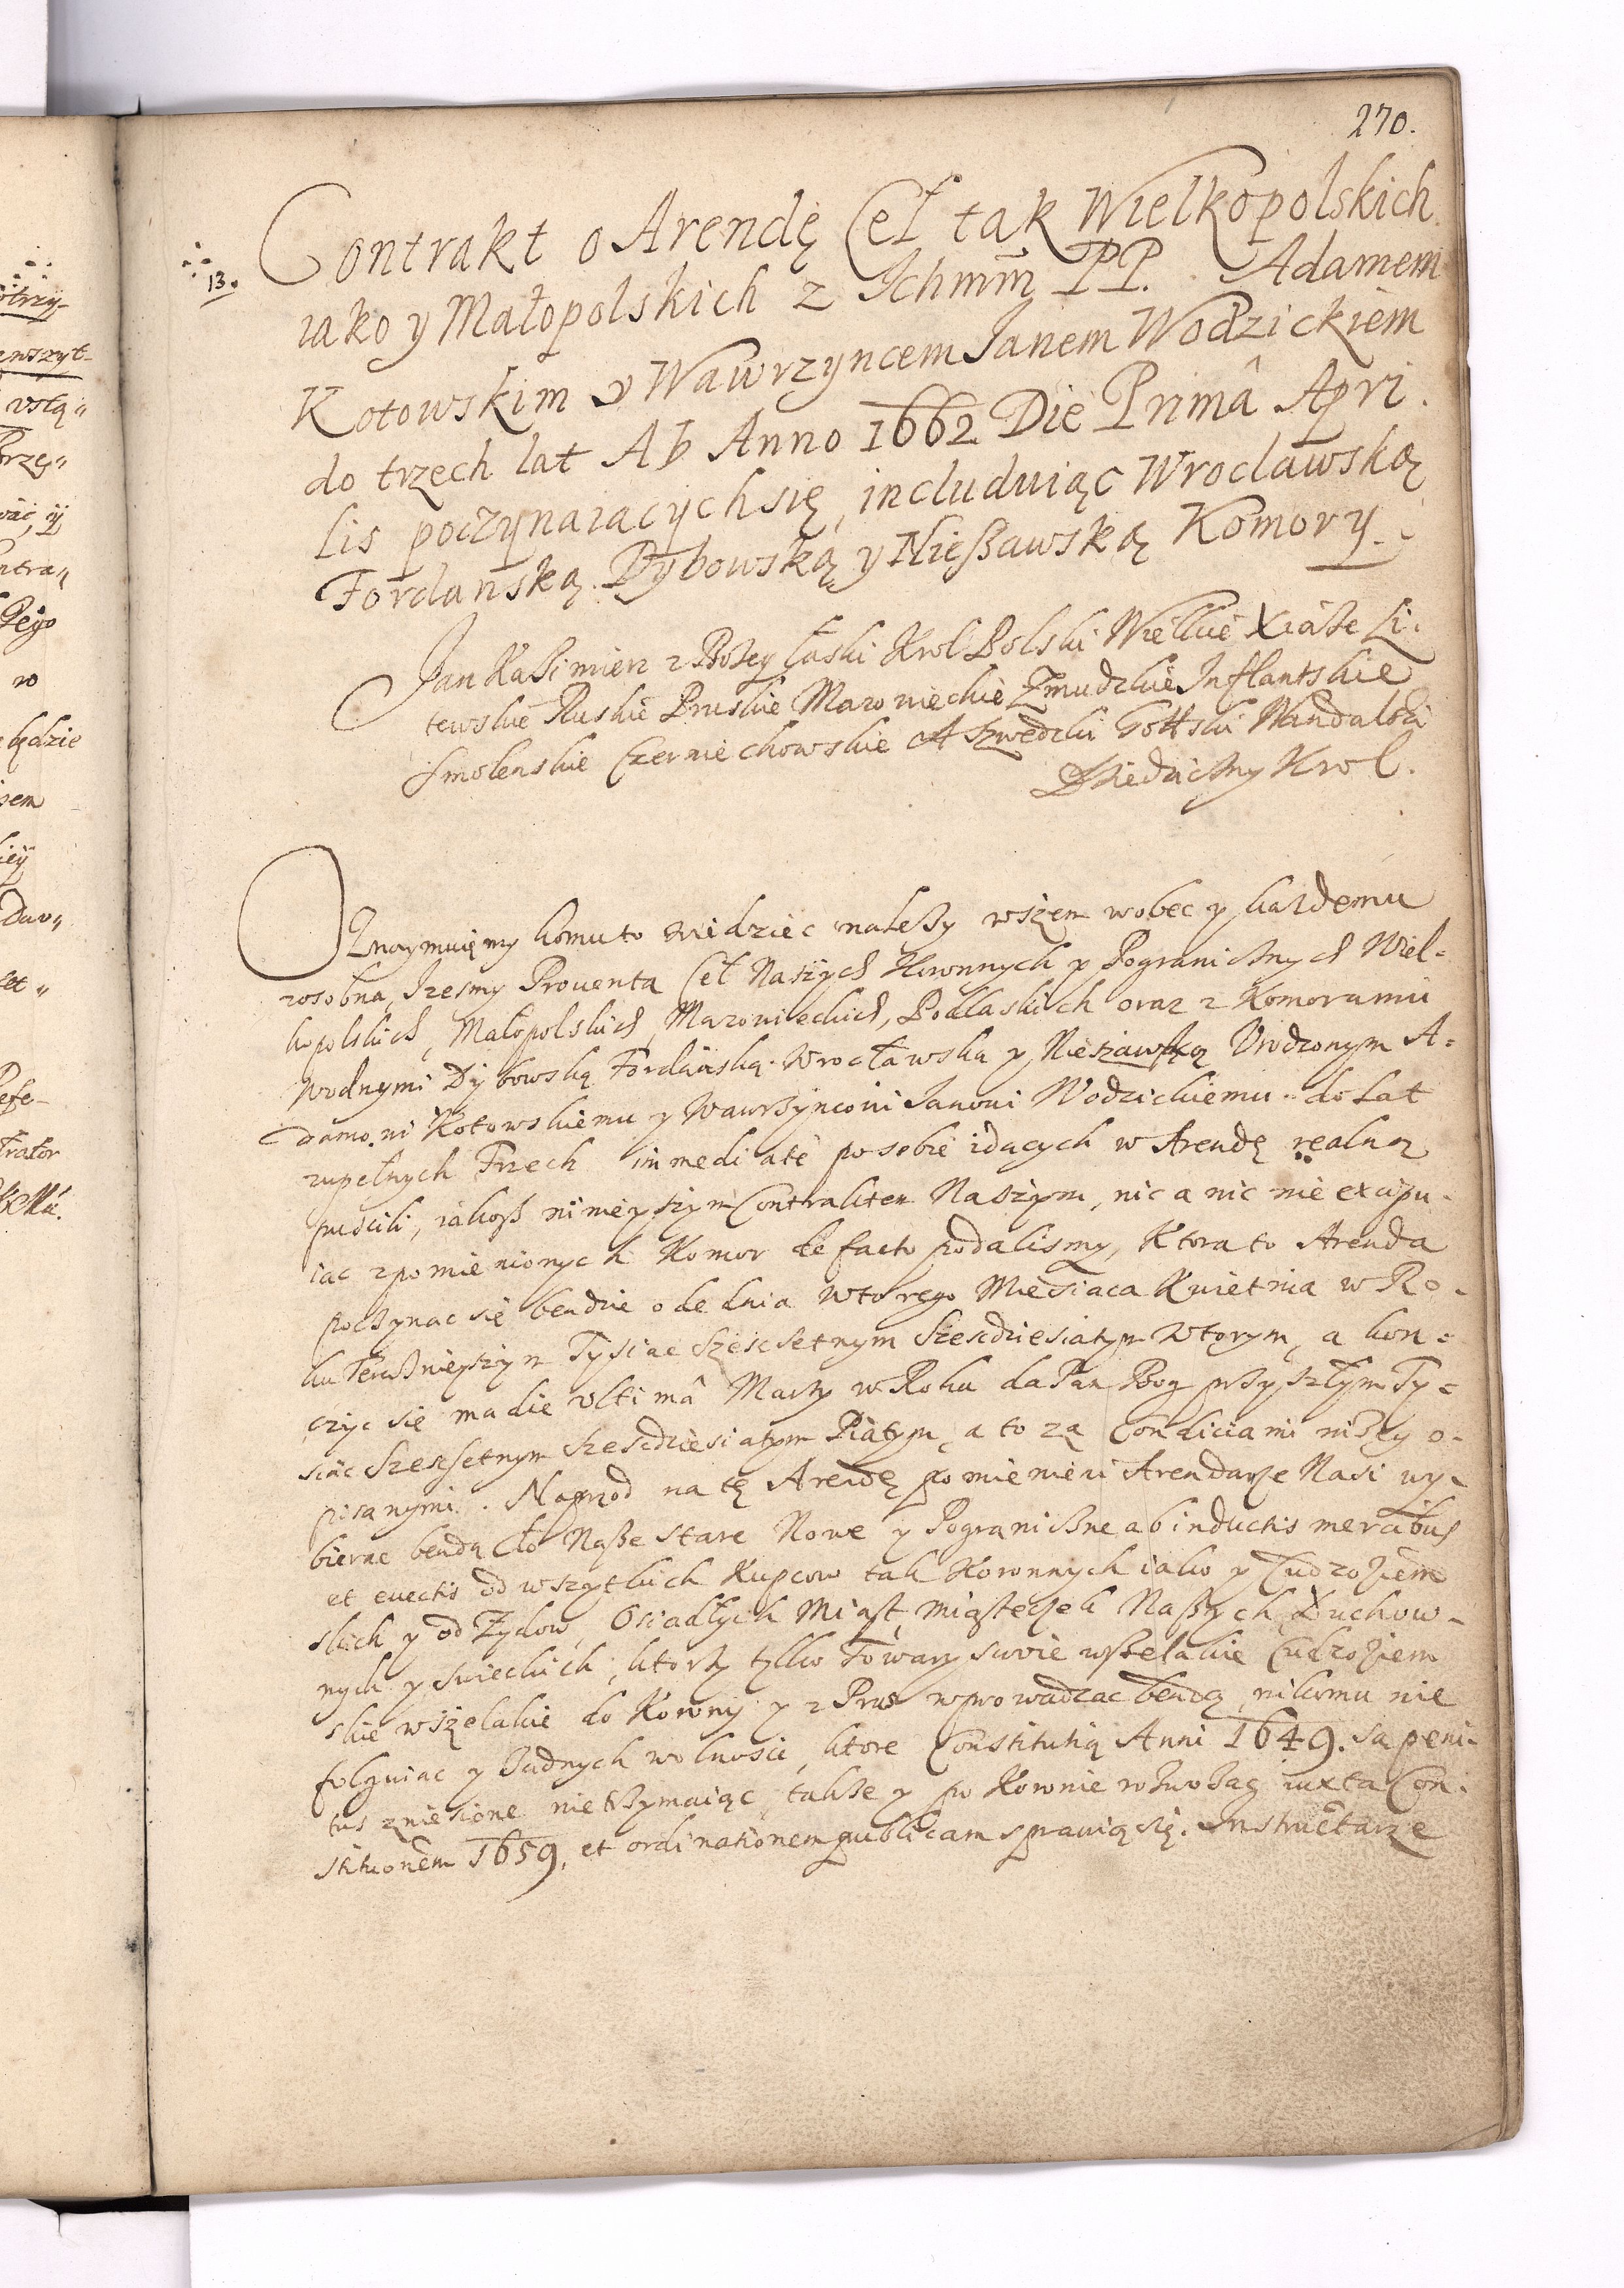 270.
13.
Contrakt o Arendę Ceł tak Wielkopolskich
iako y Małopolskich z Ichmm̃ PP. Adamem
Kotowskim y Wawrzyncem Janem Wodzickiem
do trzech lat Ab Anno 1662 Die Primâ Apri.
lis poczynaiacych się, includuiąc Wrocławską
Fordanską. Dybowską y Nießawską Komory.
Jan Kaźimierz z Bożey łaski Krol Polski Wielkie Xiąże Li.
tewskie Ruskie Pruskie Mazowieckie Zmudzkie Inflantskie
Smolenskie Czerniechowskie A Szwedzki Gottski Wandalski
Dziedziczny Krol.
Oznaymuięmy komu to wiedziec należy wszem wobec y każdemu
zosobna, Izesmy Prouenta Ceł Naszych Koronnych y Pogranicznych Wiel=
kopolskich, Małopolskich, Mazowieckich, Podlaskich oraz z Komorami
Wodnymi Dybowską Fordańską. Wrocławską y Nieszawską Vrodzonym A=
damowi Kotowskiemu y Wawrzyncowi Janowi Wodzickiemu do Lat
zupełnych Trzech immediatè po sobie idacych w Arendę realną
puscili, iakoż ninieyszym Contraktem Naszym, nic a nic nie excypu-
iac zpomienionych Komor de facto podalismy, Ktora to Arenda
poczynac się bendzie ode dnia wtorego Miesiaca Kwietnia w Ro-
ku Teraznieyszym Tysiac Szescsetnym Szescdziesiatym Wtorym, a kon=
czyc się ma die vltimâ Marty w Roku da Pan Bog przyszłym Ty=
siąc Szescsetnym Szescdziesiatym Piątym, a to za Condiciami niży o-
pisanymi. Naprzod na tę Arendę pomienieni Arendarze Nasi wy-
bierac bendą Cło Nasze stare Nowe y Pograniczne ab inductis mercibus
et euectis od wszytkich Kupcow tak Koronnych iako y Cudzoziem
skich y od Zydow, Osiadłych Miast, miasteczek Naszych Duchow-
nych y swieckich, ktorzy tylko Towary swoie wszelakie Cudzoziem
skie wszelakie do Korony y z Prus wprowadzac bendą, nikomu nie
folguiac y żadnych wolnosci, ktore Constitutią Anni 1649. są peni-
tus zniesione nie trzymaiąc, takze y po Koronie rozwożąc iuxta Con-
stitutionem 1659, et ordinationem publicam sprawią się. Instructarze